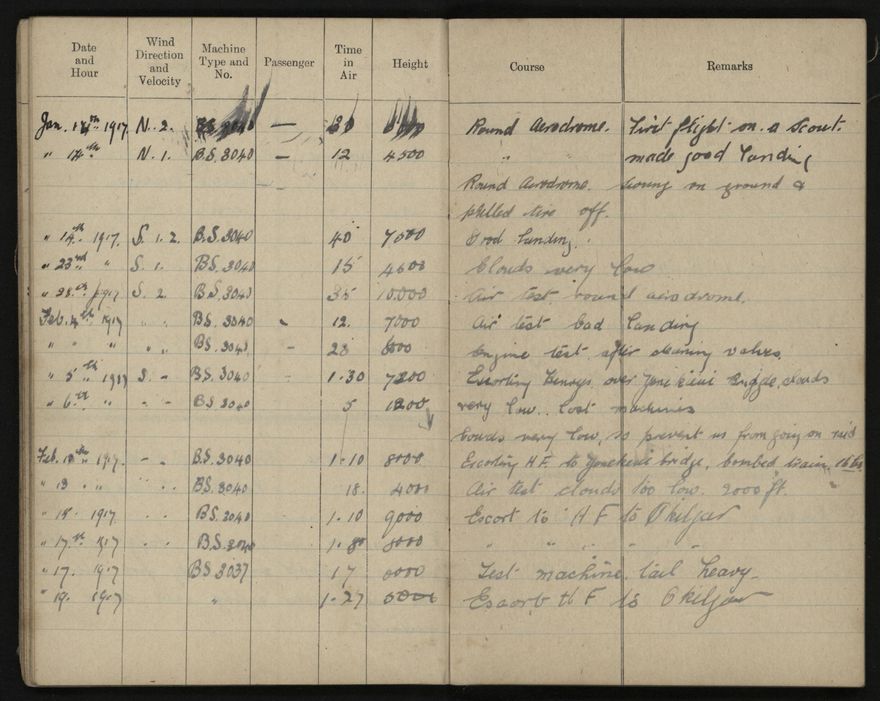 Date and Hour Wind Direction and Velocity Machine Type and No. Passenger Time in Air Height Course Remarks
Jan. 14th 1917 N. 2. B.S. 3040 — 30 Round Aerodrome. First flight on a Scout.
" 14th N. 1. B.S. 3040 — 12 4500 " " made good landing
Round Aerodrome. swung on ground &
pulled tire off.
" 19th 1917. S. 1. 2. B.S. 3040 40 7000 Good landing.
" 23rd " S. 1. B.S. 3040 15 4600 Clouds very low
" 28th 1917 S. 2. B.S. 3040 35 10.000 Air test round aerodrome.
Feb. 4th 1917 " " B.S. 3040 - 12. 7000 Air test bad landing
" " " " " B.S. 3040 - 23 6000 Engine test after cleaning valves.
" 5th 1917 S. - B.S. 3040 - 1.30 7200 Escorting Henrys over bridge, clouds
" 6th " - - B.S. 3040 5 1200 very low.. lost machines
Clouds very low, so prevent us from going on raid
Feb. 1917. - - B.S. 3040 1.10 8000 Escorting H.F. to bridge, bombed train. 16 lbs.
" 13 " " " " B.S. 3040 18. 4000 Air test clouds too low. 2000 ft.
" 1917 " " B.S. 3040 1.10 9000 Escort to H F to Okiljar
" 17th 1917 " " B.S. 3040 8000 " " " " "
" 17. 1917 B.S 3037 17 Test machine. tail heavy
" 19. 1917 " 1.27 Escort H F to Okiljar